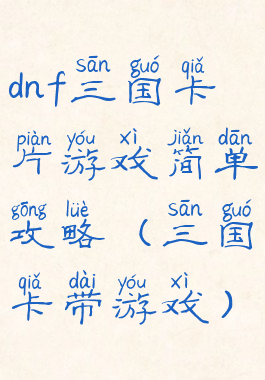 sān guó qiǎ
dnf三国卡
piàn yóu xì jiǎn dān
片游戏简单
gōng lüè sān guó
攻略（三国
qiǎ dài yóu xì
卡带游戏）